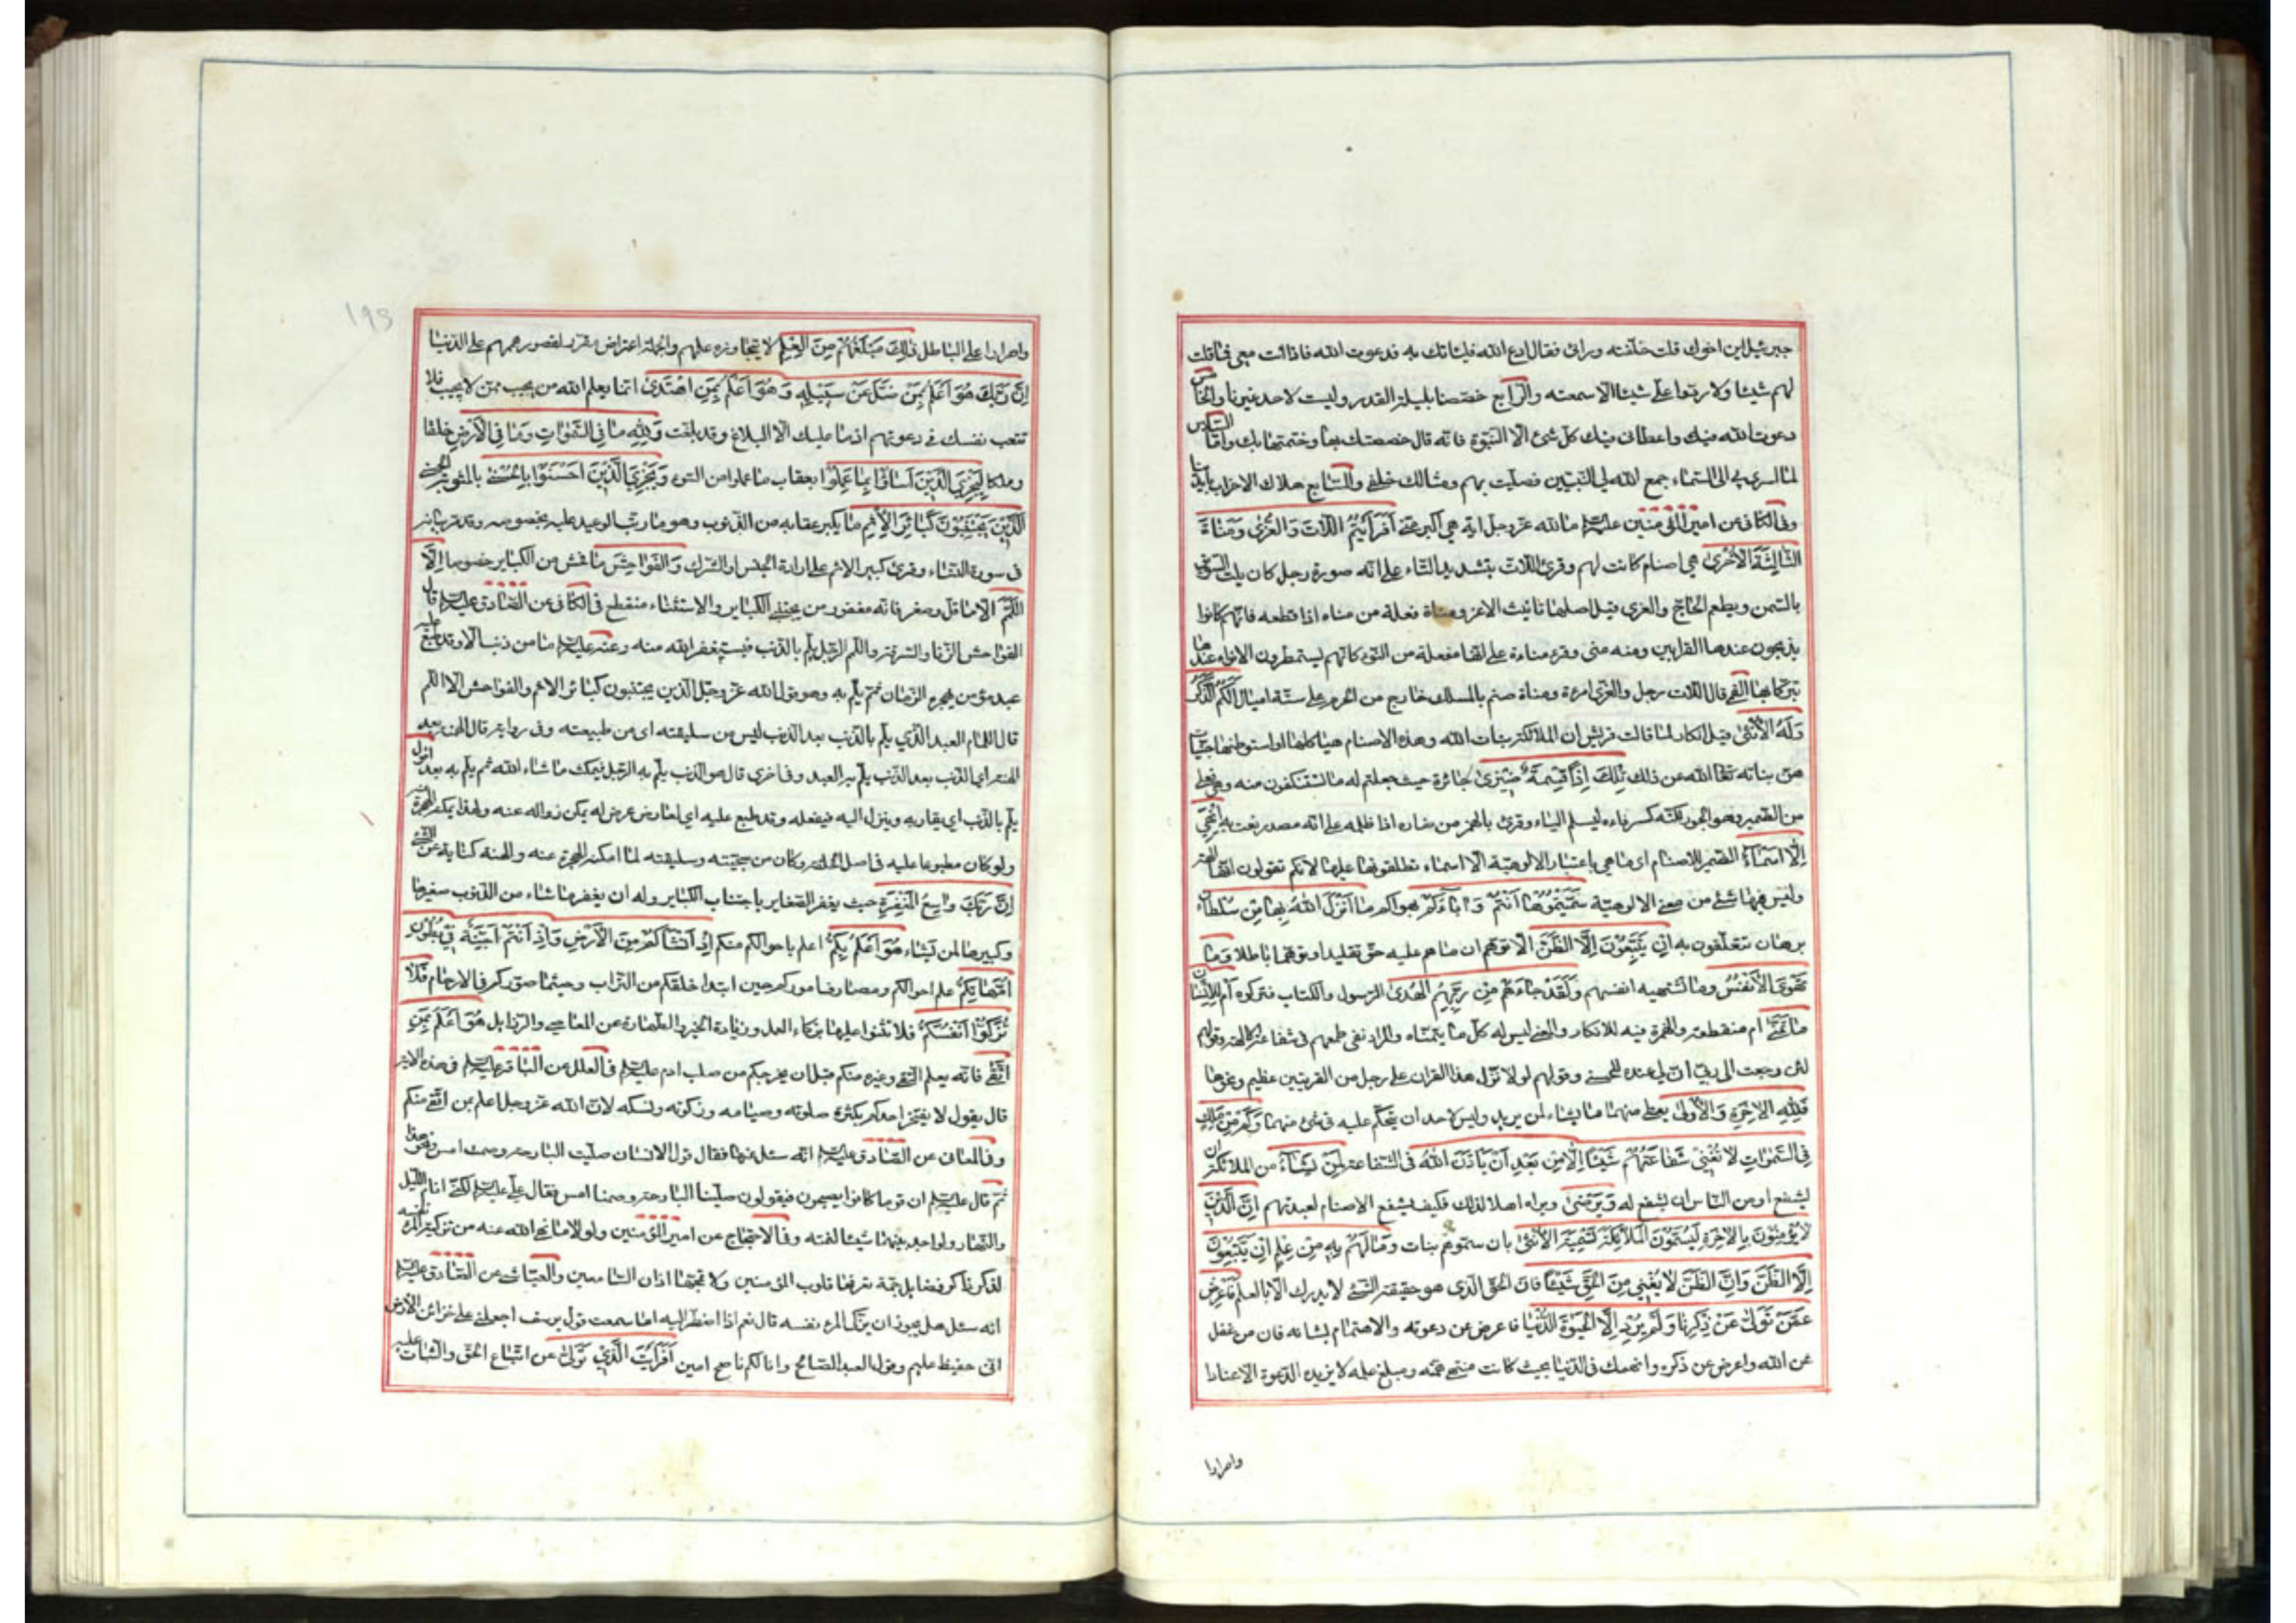 جبرئيل اين اخوك قلت خلّفته ورائى فقال ادع الله فليأتك به فدعوت الله فاذا انت معى فما قلت
لهم شيئا ولا ردّوا علىّ شيئا الا سمعته والرّابع خصّصنا بليلة القدر وليست لاحد غيرنا والخامس
دعوت الله فيك واعطانى فيك كلّ شئ الّا النبوّة فانه قال خصصتك بها وختمتها بك وامّا السّادس
لما اسرى بى الى السّماء جمع الله لى النّبيّين فصلّيت بهم ومثالك خلفى والسّابع هلاك الاحزاب بأيدينا
وفى الكافى عن امير المؤمنين عليه السلام ما لله عزّ وجلّ اية هى اكبر منّى اَفَرَاَيْتُمُ اللّاتَ وَالْعُزّى وَمَناةَ
الثّالِثَةَ الْاُخْرى هى اصنام كانت لهم وقرئ اللّات بتشديد التّاء على انّه صورة رجل كان يلتّ السّويق
بالسّمن ويطعم الحاجّ والعزى قيل اصلها تأنيث الاعز ومناة فعلة من مناه اذا قطعه فانّهم كانوا
يذبحون عندها القرابين ومنه منى وقرء مناءة على انّها مفعلة من النوء كانّهم يستمطرون الانواء عندها
تبرّكا بها القمى قال اللّات رجل والعزّى امرءة ومناة صنم بالمسلك خارج من الحرم على ستّة اميال اَلَكُمُ الذَّكَرُ
وَلَهُ الْاُنْثى قيل انكار لما قالت قريش ان الملائكة بنات الله وهذه الاصنام هياكلها او استوطنها جنيّات
هنّ بناته تعالى الله عن ذلك تِلْكَ اِذًا قِسْمَةٌ ضيزى جائرة حيث جعلتم له ما تستنكفون منه وهى فعلى
من الضّيز وهو الجور لكنّه كسر فاءه ليسلم الياء وقرئ بالهمز من ضأزه اذا ظلمه على انّه مصدر نعت به اِنْ هِيَ
اِلّا اَسْماءٌ الضّمير للاصنام اى ما هى باعتبار الالوهيّة الّا اسماء تطلقونها عليها لانّكم تقولون انها الهة
وليس فيها شئ من معنى الالوهيّة سَمَّيْتُمُوها اَنْتُمْ وَاباؤُكُمْ بهواكم ما اَنْزَلَ اللهُ بِها مِنْ سُلْطانٍ
برهان تتعلّقون به اِنْ يَتَّبِعُونَ اِلّا الظَّنَّ الّا توهّم انّ ما هم عليه حقّ تقليدا وتوهّما باطلا وَما
تَهْوَى الْاَنْفُسُ وما تشتهيه انفسهم وَلَقَدْ جاءَهُمْ مِنْ رَبِّهِمُ الْهُدى الرّسول والكتاب فتركوه اَمْ لِلْاِنْسانِ
ما تَمَنّى ام منقطعة والهمزة فيه للانكار والمعنى ليس له كلّ ما يتمنّاه والمراد نفى طمعهم فى شفاعة الالهة وقولهم
لئن رجعت الى ربّى انّ لى عنده للحسنى وقولهم لولا نزّل هذا القران على رجل من القريتين عظيم ونحوها
فَلِلّهِ الْاخِرَةُ وَالْاُولى يعطى منهما ما يشاء لمن يريد وليس لاحد ان يتحكّم عليه فى شئ منهما وَكَمْ مِنْ مَلَكٍ
فِي السَّمواتِ لا تُغْنِي شَفاعَتُهُمْ شَيْئًا اِلّا مِنْ بَعْدِ اَنْ يَأْذَنَ اللهُ فى الشّفاعة لِمَنْ يَشاءُ من الملائكة ان
يشفع او من النّاس ان يشفع له وَيَرْضى ويراه اهلا لذلك فكيف يشفع الاصنام لعبدتهم اِنَّ الَّذِينَ
لا يُؤْمِنُونَ بِالْاخِرَةِ لَيُسَمُّونَ الْمَلائِكَةَ تَسْمِيَةَ الْاُنْثى بان سمّوهم بنات وَما لَهُمْ بِهِ مِنْ عِلْمٍ اِنْ يَتَّبِعُونَ
اِلَّا الظَّنَّ وَاِنَّ الظَّنَّ لا يُغْنِي مِنَ الْحَقِّ شَيْئًا فانّ الحقّ الّذى هو حقيقة الشّئ لا يدرك الّا بالعلم فَاَعْرِضْ
عَمَّنْ تَوَلّى عَنْ ذِكْرِنا وَلَمْ يُرِدْ اِلَّا الْحَيوةَ الدُّنْيا فاعرض عن دعوته والاهتمام بشأنه فان من غفل
عن الله واعرض عن ذكره وانهمك فى الدّنيا بحيث كانت منتهى همّته ومبلغ علمه لا يزيده الدّعوة الّا عنادا
واصرارا
١٩٥
واصرارا على الباطل ذلِكَ مَبْلَغُهُمْ مِنَ الْعِلْمِ لا يتجاوزه علمهم والجملة اعتراض مقرّر لقصور هممهم على الدّنيا
اِنَّ رَبَّكَ هُوَ اَعْلَمُ بِمَنْ ضَلَّ عَنْ سَبِيلِهِ وَهُوَ اَعْلَمُ بِمَنِ اهْتَدى انّما يعلم الله من يجيب ممّن لا يجيب فلا
تتعب نفسك فى دعوتهم اذ ما عليك الّا البلاغ وقد بلّغت وَلِلّهِ ما فِي السَّمواتِ وَما فِي الْاَرْضِ خلقا
وملكا لِيَجْزِيَ الَّذِينَ اَساؤُا بِما عَمِلُوا بعقاب ما عملوا من السّوء وَيَجْزِيَ الَّذِينَ اَحْسَنُوا بِالْحُسْنى بالمثوبة الحسنى
اَلَّذِينَ يَجْتَنِبُونَ كَبائِرَ الْاِثْمِ ما يكبر عقابه من الذّنوب وهو ما رتّب الوعيد عليه بخصوصه وقد مرّ بيانه
فى سورة النّساء وقرئ كبير الاثم على ارادة الجنس او الشّرك وَالْفَواحِشَ ما فحش من الكبائر خصوصا اِلَّا
اللَّمَمَ الّا ما قلّ وصغر فانّه مغفور من مجتنبى الكبائر والاستثناء منقطع فى الكافى عن الصّادق عليه السلام قال
الفواحش الزّنا والسّرقة واللّمم الرّجل يلمّ بالذّنب فيستغفر الله منه وعنه عليه السلام ما من ذنب الّا وقد طبع عليه
عبد مؤمن يهجره الزّمان ثمّ يلمّ به وهو قول الله عزّ وجلّ الّذين يجتنبون كبائر الاثم والفواحش الّا اللّمم
قال اللّمام العبد الّذى يلمّ بالذّنب بعد الذّنب ليس من سليقته اى من طبيعته وفى رواية قال الهنة بعد
الهنة اى الذّنب بعد الذّنب يلمّ به العبد وفى اخرى قال هو الذّنب يلمّ به الرّجل فيمكث ما شاء الله ثم يلمّ به بعد اقول
يلمّ بالذّنب اى يقاربه وينزل اليه فيفعله وقد طبع عليه اى لعارض عرض له يمكن زواله عنه ولهذا يمكنه الهجرة
ولو كان مطبوعا عليه فى اصل الخلقة وكان من سجيّته وسليقته لما امكنه الهجرة عنه والهنة كناية عن الشئ
اِنَّ رَبَّكَ واسِعُ الْمَغْفِرَةِ حيث يغفر الصّغاير باجتناب الكباير وله ان يغفر ما شاء من الذّنوب صغيرها
وكبيرها لمن يشاء هُوَ اَعْلَمُ بِكُمْ اعلم باحوالكم منكم اِذْ اَنْشَاَكُمْ مِنَ الْاَرْضِ وَاِذْ اَنْتُمْ اَجِنَّةٌ فِي بُطُونِ
اُمَّهاتِكُمْ علم احوالكم ومصارف اموركم حين ابتدا خلقكم من التّراب وحيثما صوّركم فى الارحام فَلا
تُزَكُّوا اَنْفُسَكُمْ فلا تثنوا عليها بزكاء العمل وزيادة الخير والطّهارة عن المعاصى والرّذايل هُوَ اَعْلَمُ بِمَنِ
اتَّقى فانّه يعلم التّقى وغيره منكم قبل ان يخرجكم من صلب ادم عليه السلام فى العلل عن الباقر عليه السلام فى هذه الاية
قال يقول لا يفتخر احدكم بكثرة صلوته وصيامه وزكوته ونسكه لانّ الله عزّ وجلّ اعلم بمن اتّقى منكم
وفى المعانى عن الصّادق عليه السلام انّه سئل عنها فقال قول الانسان صلّيت البارحة وصمت امس ونحو هذا
ثمّ قال عليه السلام ان قوما كانوا يصبحون فيقولون صلّينا البارحة وصمنا امس فقال علىّ عليه السلام لكنّى انام اللّيل
والنّهار ولو اجد بينهما شيئا لنمته وفى الاحتجاج عن امير المؤمنين ولولا ما نهى الله عنه من تزكية المرء نفسه
لذكر ذاكر فضايل جمّة تعرفها قلوب المؤمنين ولا تمجّها اذان السّامعين والعيّاشى عن الصّادق عليه السلام
انه سئل هل يجوز ان يزكّى المرء نفسه قال نعم اذا اضطرّ اليه اما سمعت قول يوسف اجعلنى على خزائن الارض
انّى حفيظ عليم وقول العبد الصّالح وانا لكم ناصح امين اَفَرَاَيْتَ الَّذِي تَوَلّى عن اتّباع الحقّ والثّبات عليه